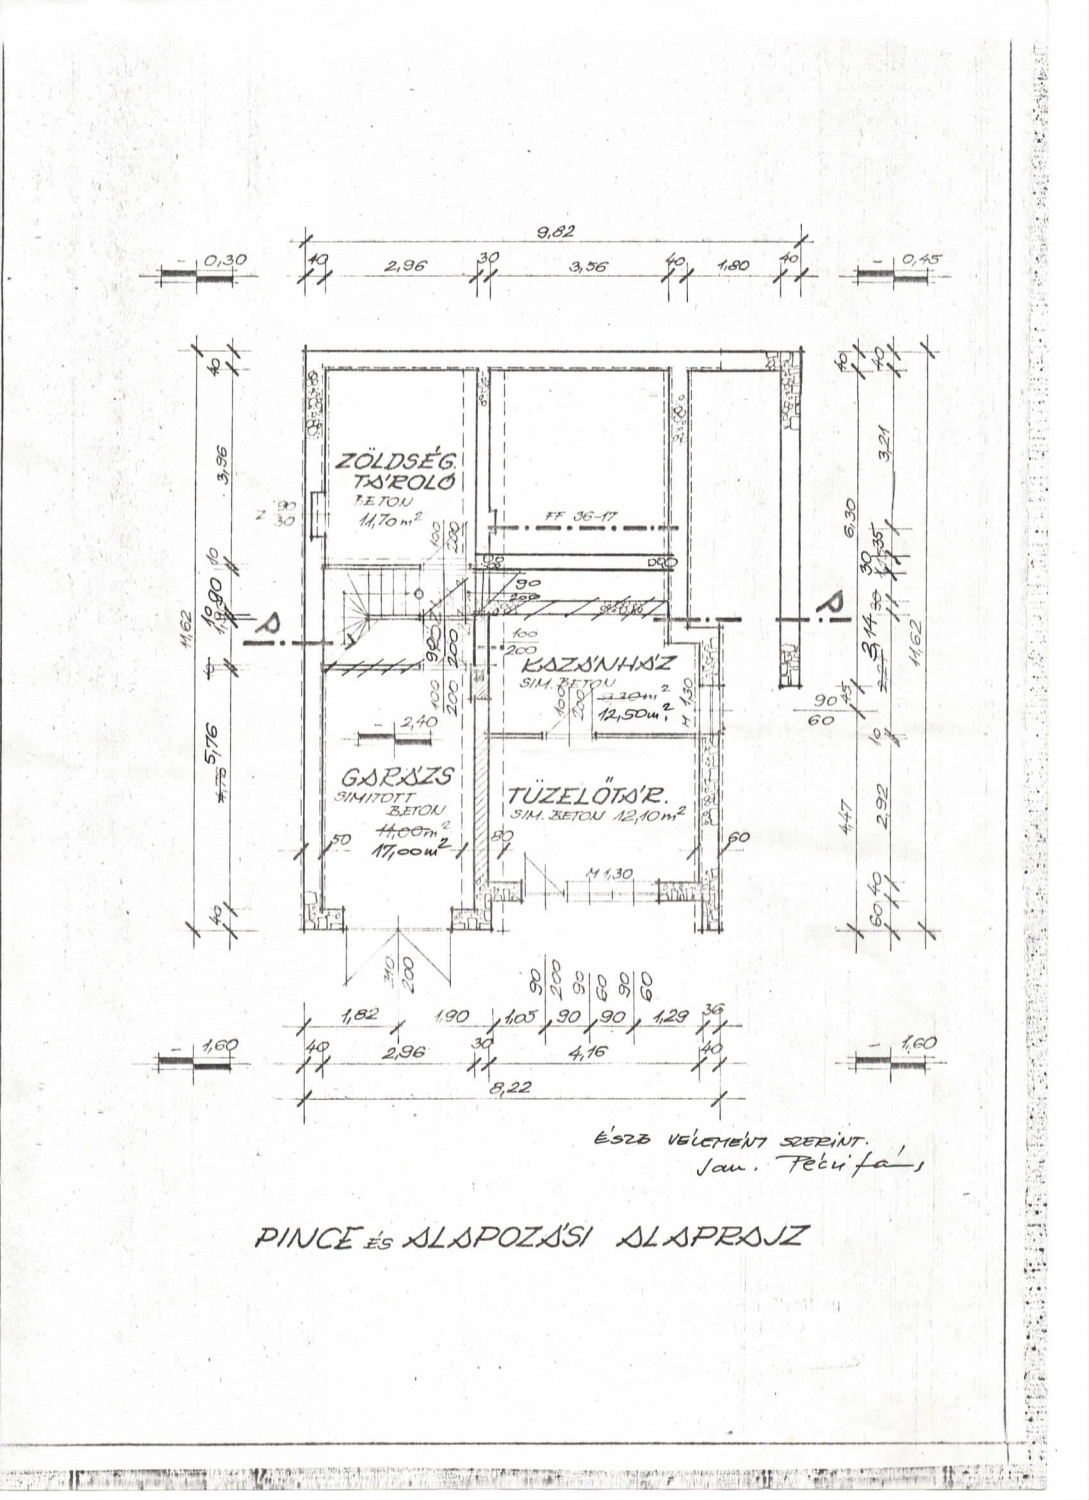 9,82
- 0,30
40
2,96
30
3,56
40
1,80
40
- 0,45
40
3,96
10
90
10
11,62
5,76
40
ZÖLDSÉG
TÁROLÓ
BETON
11,70 m²
Z 90
30
100
200
FF 36-17
90
200
100
200
90
200
100
200
KAZÁNHÁZ
SIM. BETON
12,50 m²
100
200
M 1,30
- 2,40
GARÁZS
SIMITOTT
BETON
17,00 m²
50
TÜZELŐTÁR.
SIM. BETON 12,10 m²
80
60
M 1,30
40
40
3,21
6,30
35
30
3,14
30
11,62
90
60
45
10
4,47
2,92
40
60
210
200
90
200
90
60
90
60
1,82
1,90
1,05
90
90
1,29
36
- 1,60
40
2,96
30
4,16
40
- 1,60
8,22
ÉSZB VÉLEMÉNY SZERINT.
PINCE ÉS ALAPOZÁSI ALAPRAJZ